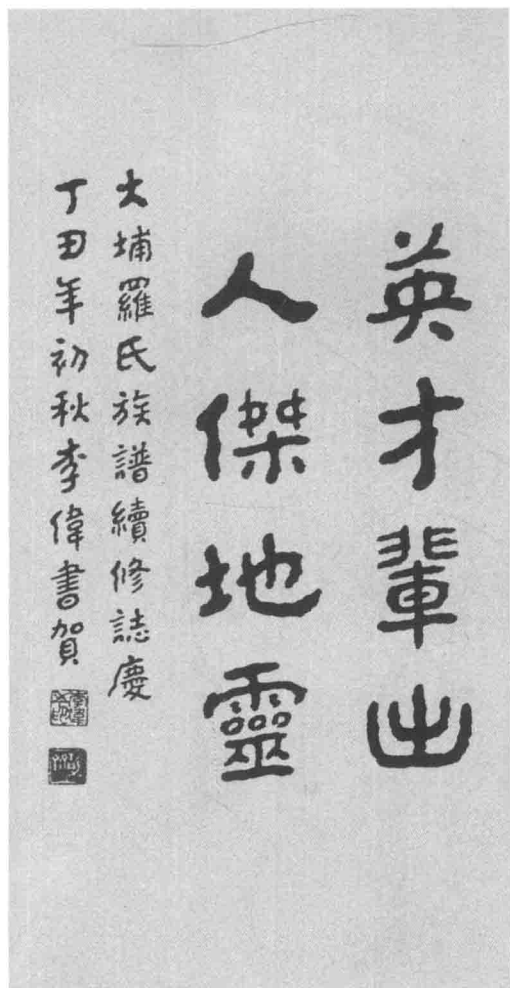 英才輩出
人傑地靈
大埔羅氏族譜續修誌慶
丁丑年初秋李偉書賀